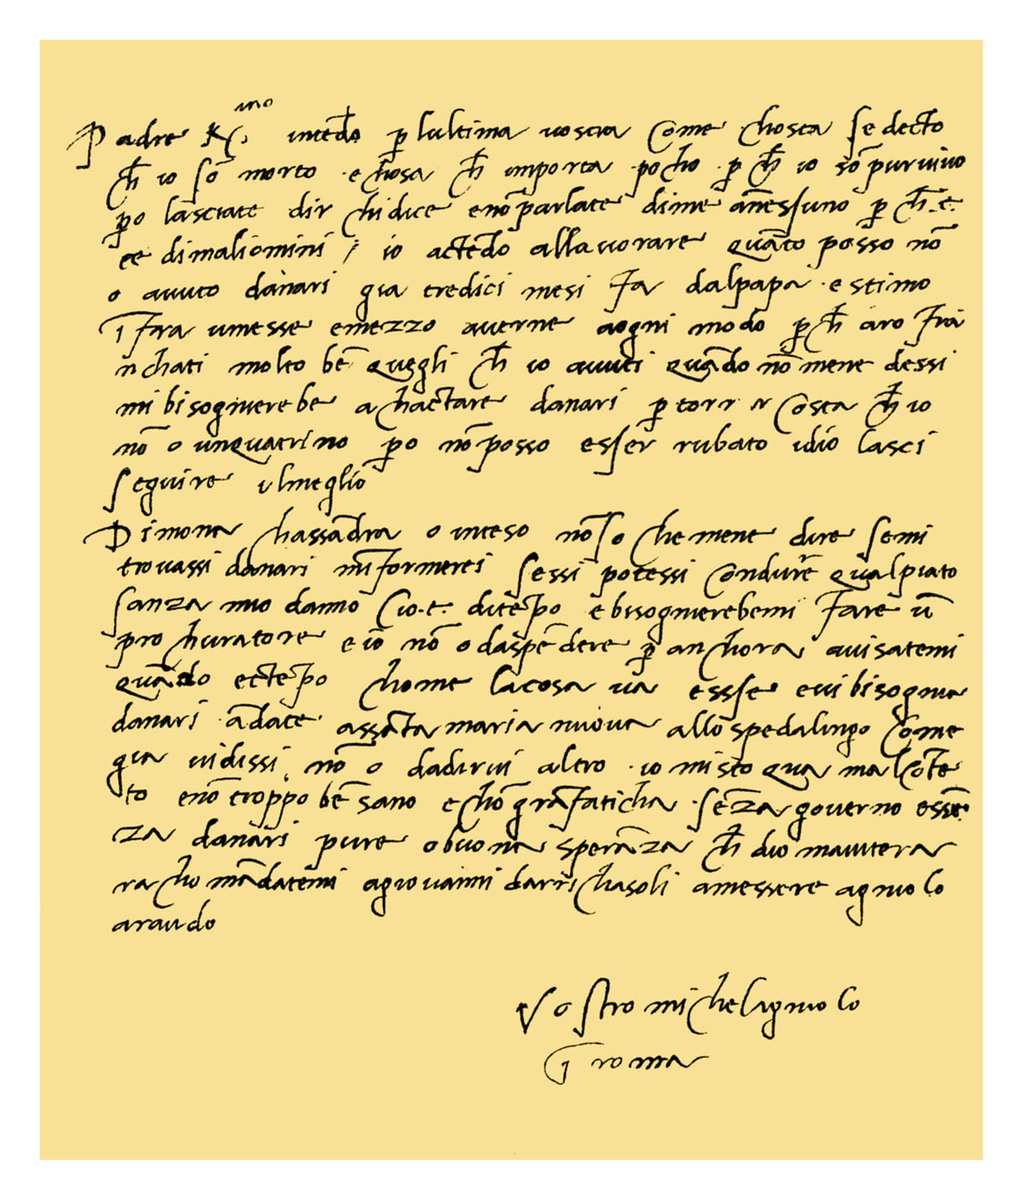 Padre K(mo intedo p lultima vostra Come chosta se decto
ch io so morto e chosa ch importa pocho p ch io so pur vivo
po lasciate dir chi dice e no parlate di me a nessuno p ch e
ce di mali omini / io actedo allavorare quato posso no
o avuto danari gia tredici mesi fa dal papa e stimo
i fra u mese e mezzo averne a ogni modo p ch aro fra
nchati molto be quegli ch io avuti quado no me ne dessi
mi bisogniere be achactare danari p torr Costa ch io
no o un quatrino po no posso esser rubato idio lasci
seguire il meglio
Di mona chassadra o inteso no so che me ne dire se mi
trovassi danari m iformerei se ssi potessi Condure qua l piato
sanza mio danno Cio e di tepo e bisognierebemi fare u
prochuratore e io no o da spedere p anchora avisatemi
quado e c tepo chome la cosa va essse e vi bisognia
danari adate a ssata maria nuova allo spedalingo Come
gia vi dissi no o da dirvi altro io mi sto qua mal Cote
to e no troppo be sano e cho gra faticha seza governo e sse
za danari pure o buona speraza ch dio m aiutera
rachomadatemi a giovanni da richasoli a messere agniolo
araldo
Vostro michelagniolo
i roma